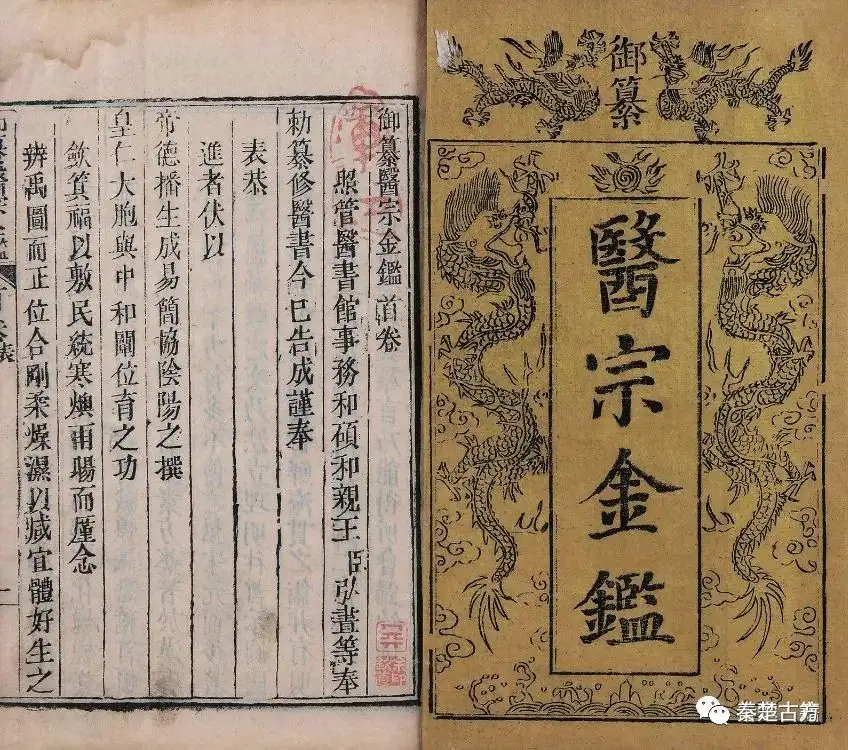 御纂
醫宗金鑑
御纂醫宗金鑑首卷
照管醫書館事務和碩和親王臣弘晝等奉
勅纂修醫書今已告成謹奉
表恭
進者伏以
帝德播生成易簡協陰陽之撰
皇仁大胞與中和闡位育之功
歛箕福以敷民統寒燠雨暘而厪念
辨禹圖而正位合剛柔燥濕以咸宜體好生之
秦楚古籍